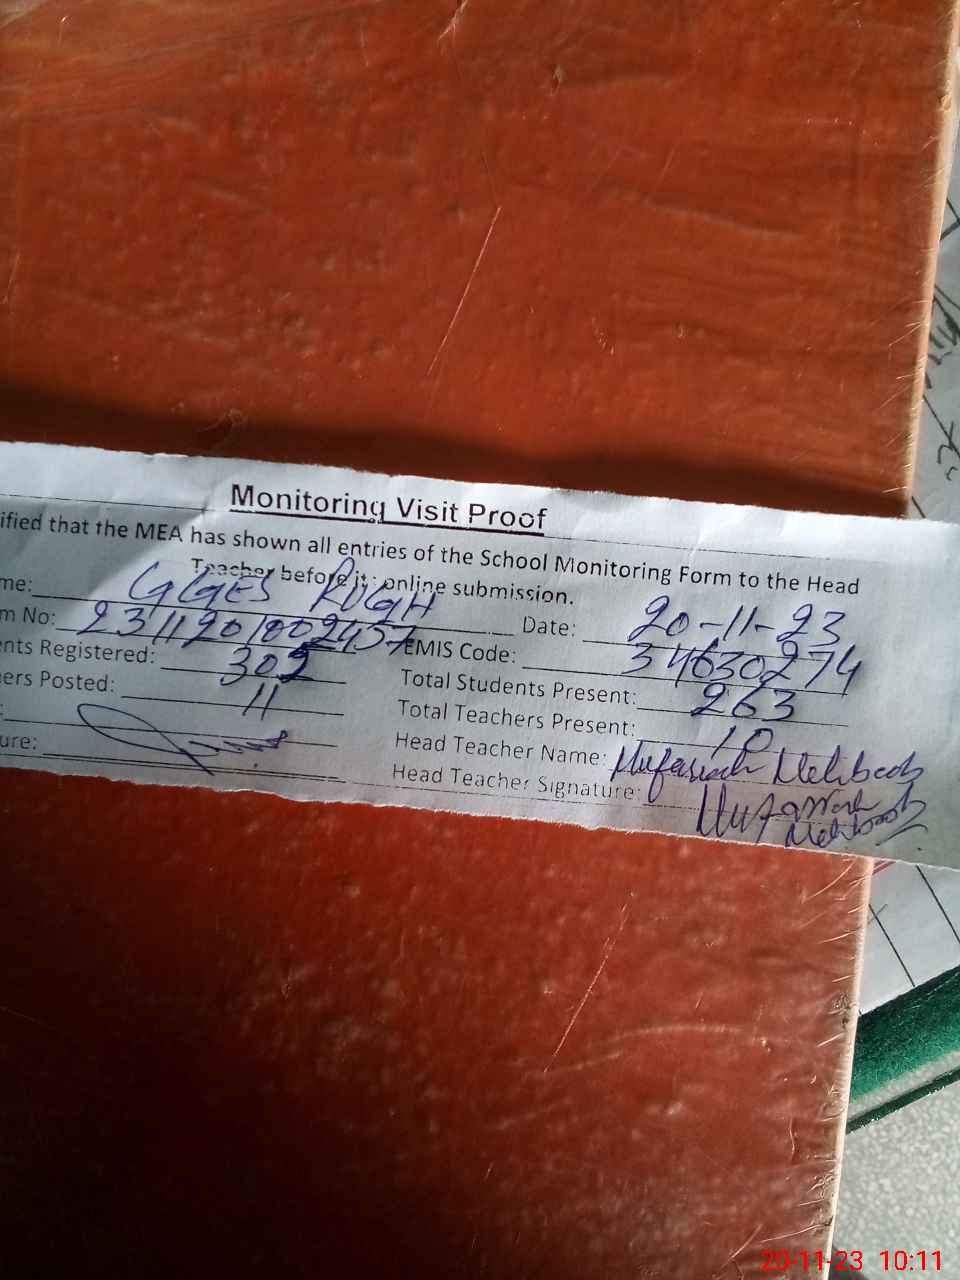 Monitoring Visit Proof
ified that the MEA has shown all entries of the School Monitoring Form to the Head
Teacher before its online submission.
me: GGES RUGH Date: 20-11-23
m No: 2311201002457 EMIS Code: 34630274
nts Registered: 302 Total Students Present: 263
ers Posted: 11 Total Teachers Present: 10
: Head Teacher Name: Mehboob
ure: Head Teacher Signature: Mehboob
20-11-23 10:11